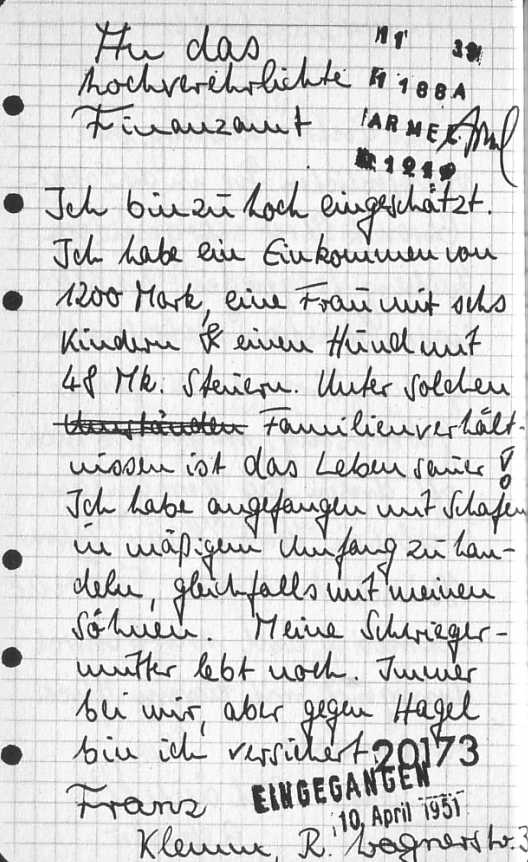 An das
hochverehrlichte
Finanzamt
Ich bin zu hoch eingeschätzt.
Ich habe ein Einkommen von
1200 Mark, eine Frau mit sechs
Kindern & einen Hund mit
48 Mk. Steuern. Unter solchen
Umständen Familienverhält-
nissen ist das Leben sauer!
Ich habe angefangen mit Schafen
in mäßigem Umfang zu han-
deln, gleichfalls mit meinen
Söhnen. Meine Schwieger-
mutter lebt noch. Immer
bei mir, aber gegen Hagel
bin ich versichert.
20173
EINGEGANGEN
10. April 1951
Franz
Klemm, R. Wagnerstr. 3